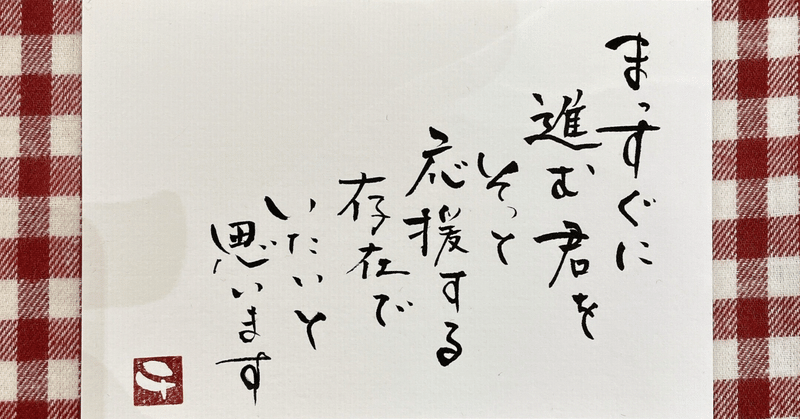 まっすぐに
進む君を
そっと
応援する
存在で
いたいと
思います